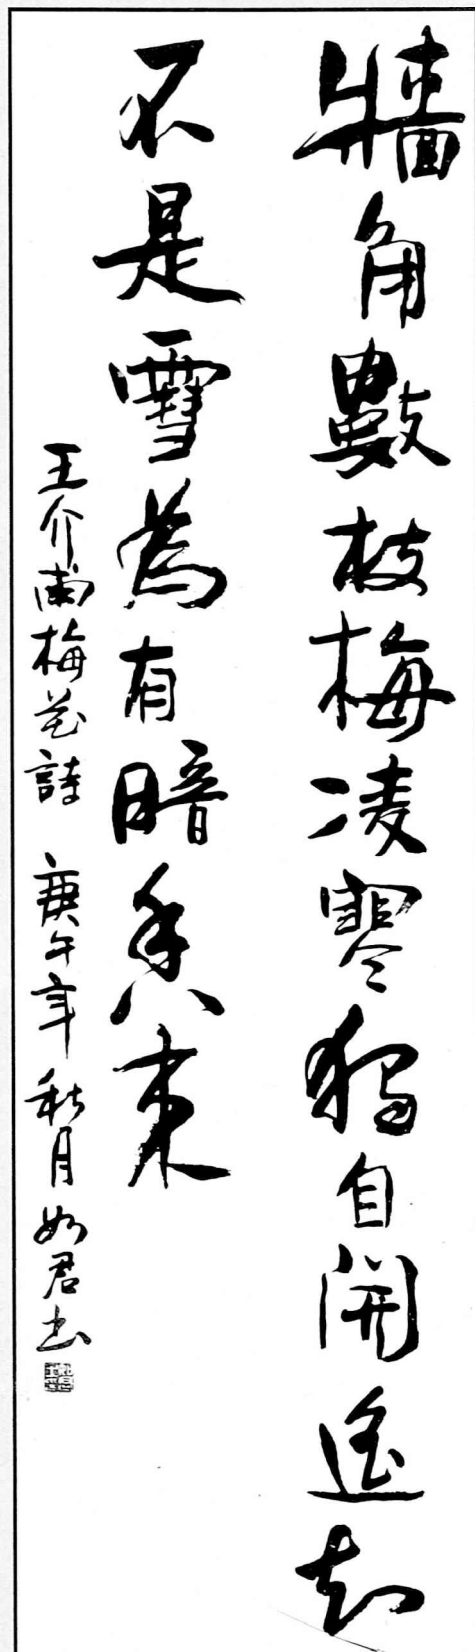 牆角數枝梅凌寒獨自開遙知
不是雪為有暗香來
王介甫梅花詩 庚午年秋月如君書